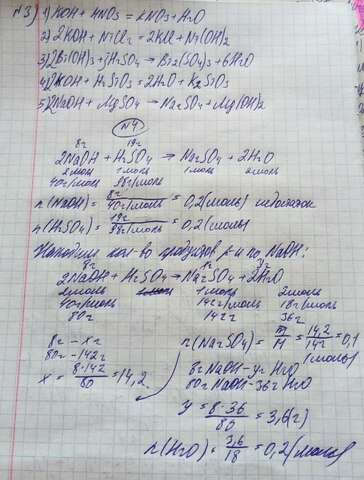 №3) 1) KOH + HNO3 = KNO3 + H2O
2) 2KOH + NiCl2 = 2KCl + Ni(OH)2
3) 2Bi(OH)3 + 3H2SO4 → Bi2(SO4)3 + 6H2O
4) 2KOH + H2SiO3 = 2H2O + K2SiO3
5) 2NaOH + MgSO4 → Na2SO4 + Mg(OH)2
№4
8г 19г
2NaOH + H2SO4 → Na2SO4 + 2H2O
2моль 1моль 1моль 2моль
40г/моль 98г/моль
n(NaOH) = 8г / 40г/моль = 0,2(моль) недостаток
n(H2SO4) = 19г / 98г/моль = 0,2(моль)
Находим кол-во продуктов р-и по NaOH:
8г xг yг
2NaOH + H2SO4 → Na2SO4 + 2H2O
2моль 1моль 2моль
40г/моль 142г/моль 18г/моль
80г 142г 36г
8г – xг
80г – 142г
x = 8·142 / 80 = 14,2
n(Na2SO4) = m / M = 14,2 / 142 = 0,1
(моль)
8г NaOH – yг H2O
80г NaOH – 36г H2O
y = 8·36 / 80 = 3,6(г)
n(H2O) = 3,6 / 18 = 0,2(моль)